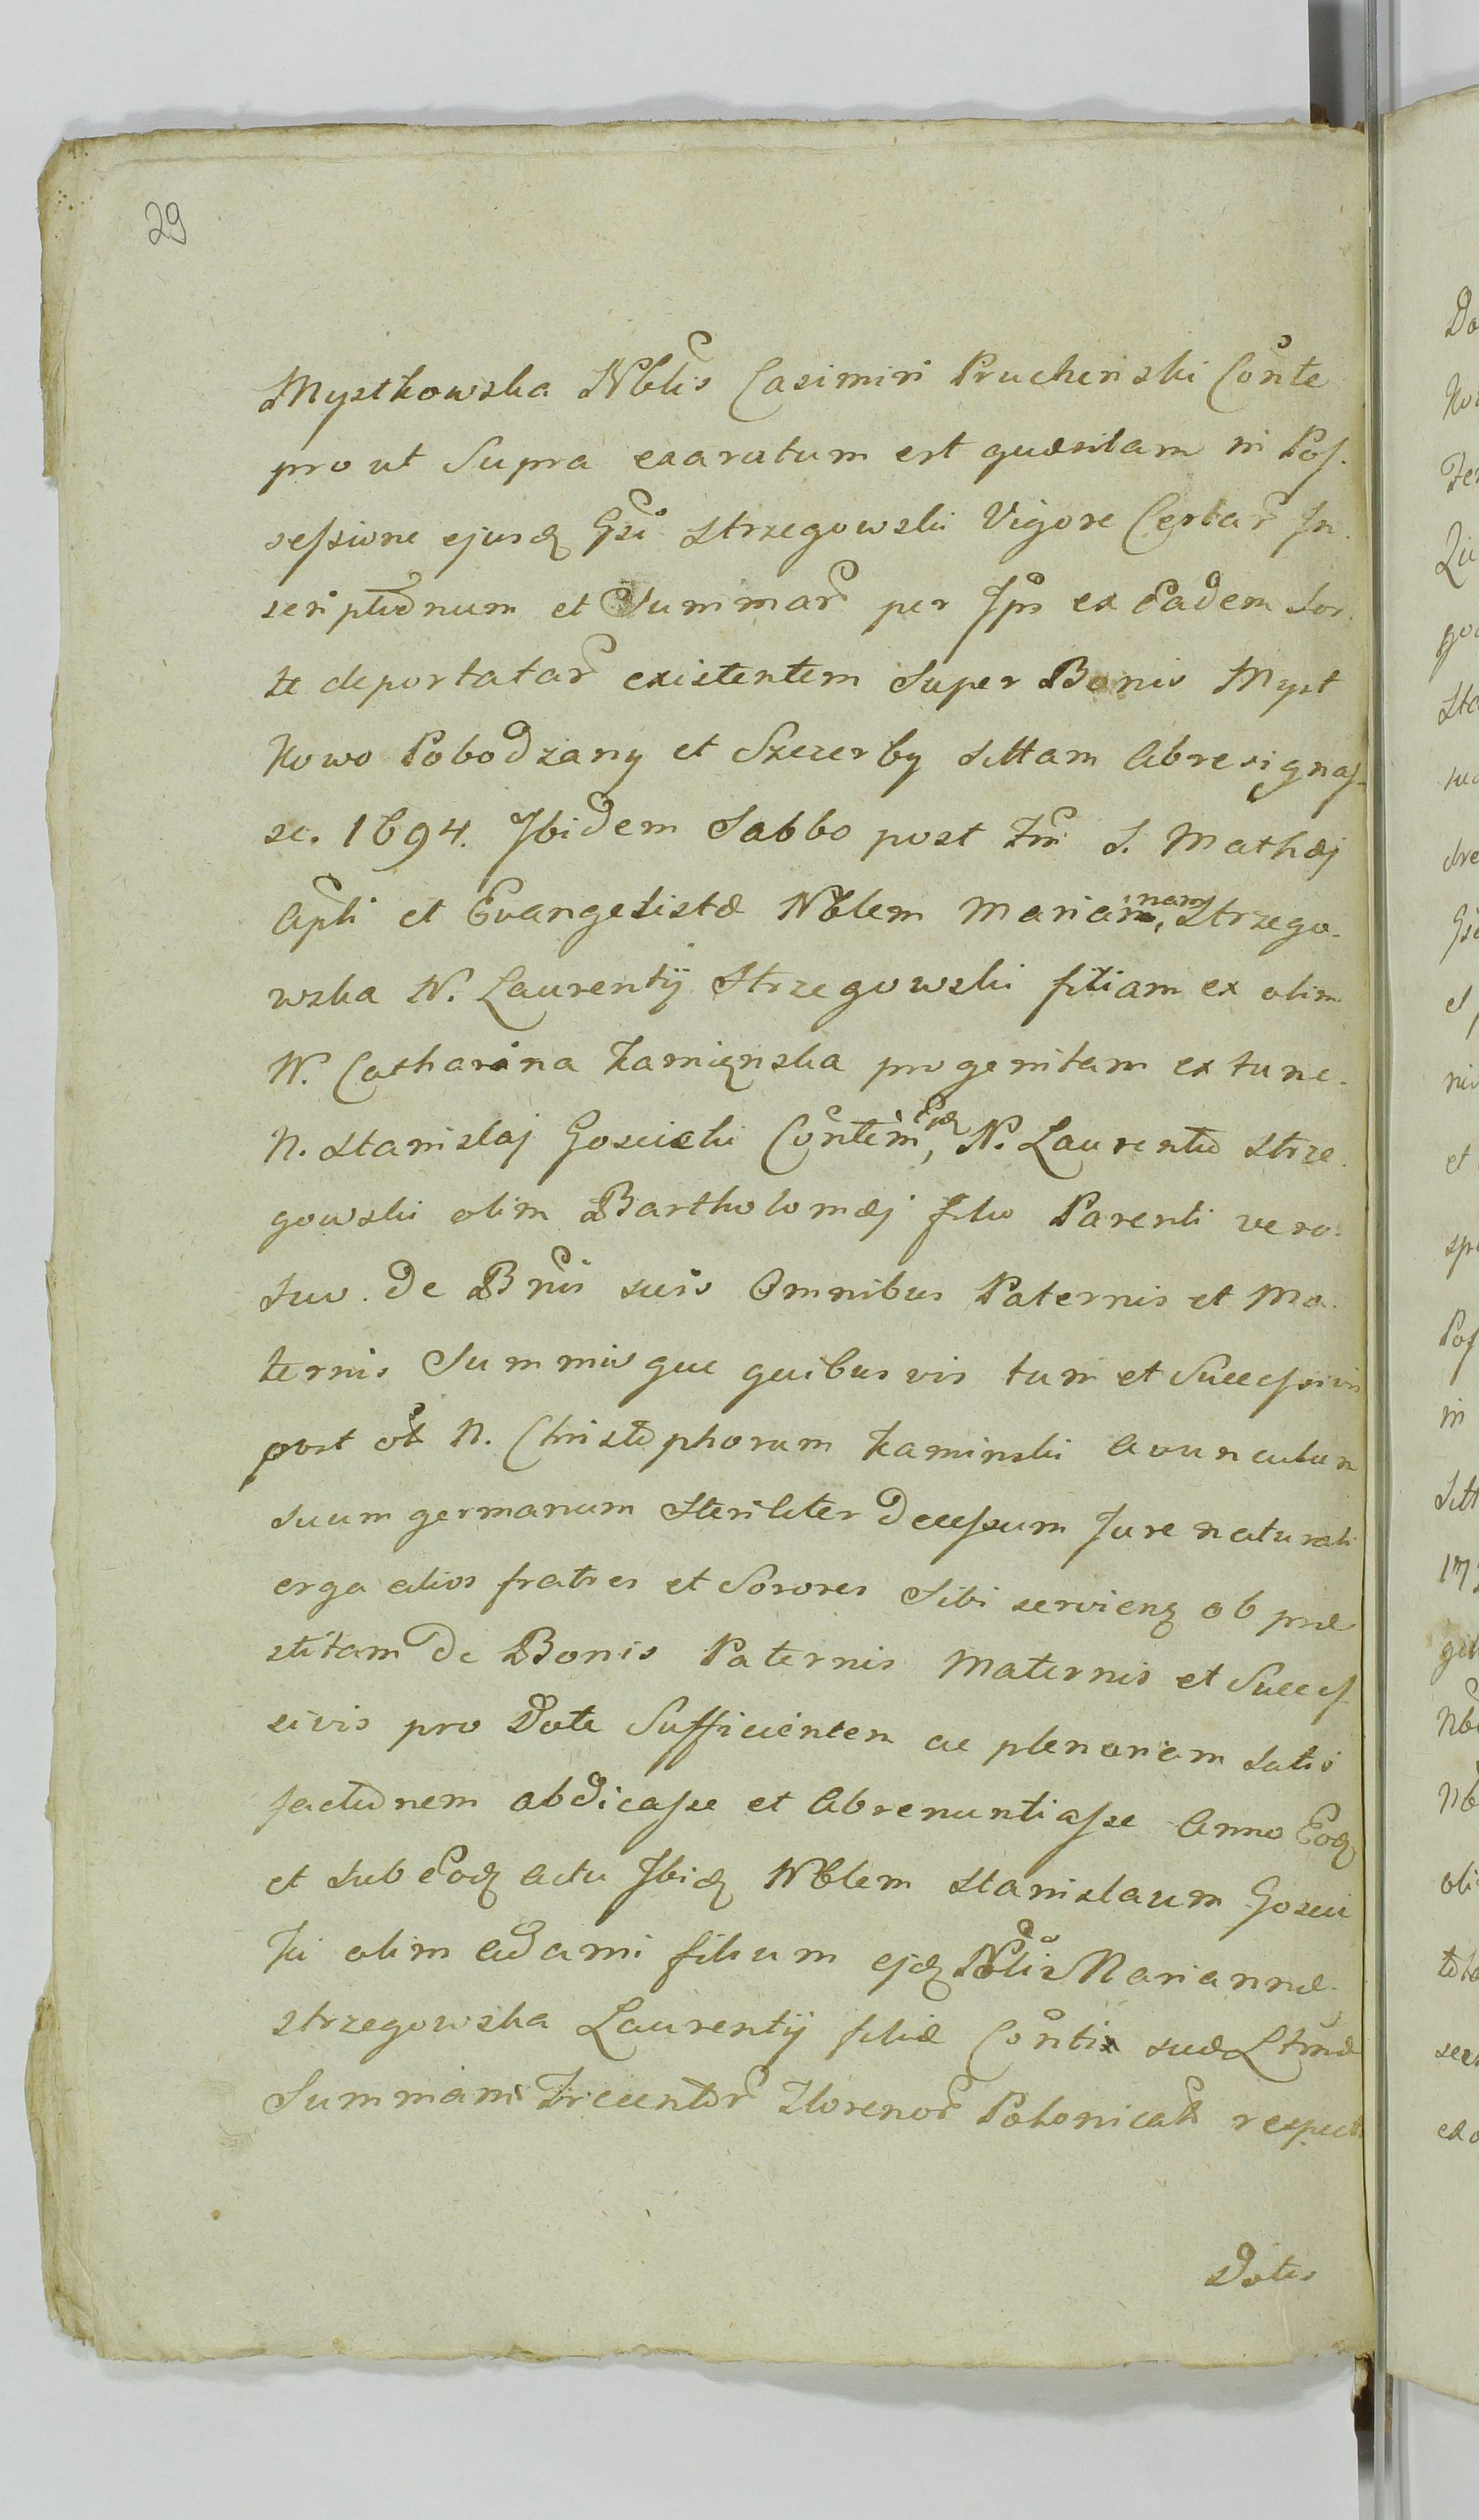 29
Mystkowska Nblis Casimiri Pruchenski Conte
pro ut Supra exaratum est quæsitam in Pos-
sessione ejusq Gsi Strzegowski Vigore Certar In-
scriptionum et Summar per Ips ex Eadem Sor-
te deportatar existentem Super Bonis Myst
Kowo Pobodzany et Szczerby Sittam Abresignas-
se. 1694. Ibidem Sabbo post Fm S. Mathæj
Apli et Evangelistæ Nblem Mariannam, Strzego-
wska N. Laurentij Strzegowski filiam ex olim
N. Catharina Kamięnska progenitam extunc
N. Stanislaj Goscicki Contem, Ejdq N. Laurentio Strze-
gowski olim Bartholomæj filio Parenti vero
Suo. De Bnis suis Omnibus Paternis et Ma-
ternis Summisque quibusvis tum et Successivis
post ol N. Christophorum Kaminski Avunculum
Suum germanum Steriliter Decessum Jure naturali
erga alios fratres et Sorores Sibi servienq ob præ
stitam De Bonis Paternis Maternis et Success
sivis pro Dote Sufficientem ac plenariam Satis
factionem abdicasse et Abrenuntiasse Anno Eodq
et sub Eodq actu Ibidq Nblem Stanislaum Gosci
Ki olim Adami filium ejdq Nblis Mariannæ
Strzegowska Laurentij filiæ Contis suæ Ltmæ
Summam Trecentor Florenor Polonical respectu
Dotis